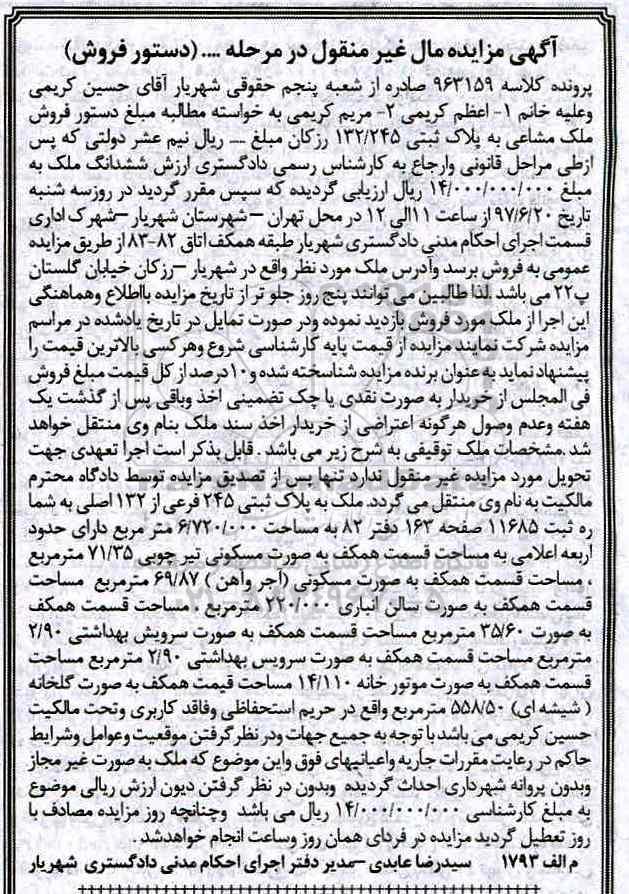 آگهی مزایده مال غیر منقول در مرحله .... (دستور فروش)
پرونده کلاسه ۹۶۳۱۵۹ صادره از شعبه پنجم حقوقی شهریار آقای حسین کریمی
وعلیه خانم ۱- اعظم کریمی ۲- مریم کریمی به خواسته مطالبه مبلغ دستور فروش
ملک مشاعی به پلاک ثبتی ۱۳۲/۲۴۵ رزکان مبلغ .... ریال نیم عشر دولتی که پس
ازطی مراحل قانونی وارجاع به کارشناس رسمی دادگستری ارزش ششدانگ ملک به
مبلغ ۱۴/۰۰۰/۰۰۰/۰۰۰ ریال ارزیابی گردیده که سپس مقرر گردید در روزسه شنبه
تاریخ ۹۷/۶/۲۰ از ساعت ۱۱الی ۱۲ در محل تهران –شهرستان شهریار –شهرک اداری
قسمت اجرای احکام مدنی دادگستری شهریار طبقه همکف اتاق ۸۲-۸۳ از طریق مزایده
عمومی به فروش برسد وآدرس ملک مورد نظر واقع در شهریار –رزکان خیابان گلستان
پ۲۲ می باشد .لذا طالبین می توانند پنج روز جلو تر از تاریخ مزایده بااطلاع وهماهنگی
این اجرا از ملک مورد فروش بازدید نموده ودر صورت تمایل در تاریخ یادشده در مراسم
مزایده شرکت نمایند مزایده از قیمت پایه کارشناسی شروع وهرکسی بالاترین قیمت را
پیشنهاد نماید به عنوان برنده مزایده شناسخته شده و۱۰درصد از کل قیمت مبلغ فروش
فی المجلس از خریدار به صورت نقدی یا چک تضمینی اخذ وباقی پس از گذشت یک
هفته وعدم وصول هرگونه اعتراضی از خریدار اخذ سند ملک بنام وی منتقل خواهد
شد .مشخصات ملک توقیفی به شرح زیر می باشد . قابل بذکر است اجرا تعهدی جهت
تحویل مورد مزایده غیر منقول ندارد تنها پس از تصدیق مزایده توسط دادگاه محترم
مالکیت به نام وی منتقل می گردد. ملک به پلاک ثبتی ۲۴۵ فرعی از ۱۳۲ اصلی به شما
ره ثبت ۱۱۶۸۵ صفحه ۱۶۳ دفتر ۸۲ به مساحت ۶/۷۲۰/۰۰۰ متر مربع دارای حدود
اربعه اعلامی به مساحت قسمت همکف به صورت مسکونی تیر چوبی ۷۱/۳۵ مترمربع
، مساحت قسمت همکف به صورت مسکونی (آجر وآهن ) ۶۹/۸۷ مترمربع مساحت
قسمت همکف به صورت سالن انباری ۲۲۰/۰۰۰ مترمربع ، مساحت قسمت همکف
به صورت ۳۵/۶۰ مترمربع مساحت قسمت همکف به صورت سرویش بهداشتی ۲/۹۰
مترمربع مساحت قسمت همکف به صورت سرویس بهداشتی ۲/۹۰ مترمربع مساحت
قسمت همکف به صورت موتور خانه ۱۴/۱۱۰ مساحت قیمت همکف به صورت گلخانه
( شیشه ای) ۵۵۸/۵۰ مترمربع واقع در حریم استحفاظی وفاقد کاربری وتحت مالکیت
حسین کریمی می باشد با توجه به جمیع جهات ودر نظر گرفتن موقعیت وعوامل وشرایط
حاکم در رعایت مقررات جاریه واعیانیهای فوق واین موضوع که ملک به صورت غیر مجاز
وبدون پروانه شهرداری احداث گردیده وبدون در نظر گرفتن دیون ارزش ریالی موضوع
به مبلغ کارشناسی ۱۴/۰۰۰/۰۰۰/۰۰۰ ریال می باشد وچنانچه روز مزایده مصادف با
روز تعطیل گردید مزایده در فردای همان روز وساعت انجام خواهدشد .
م الف ۱۷۹۳ سیدرضا عابدی –مدیر دفتر اجرای احکام مدنی دادگستری شهریار